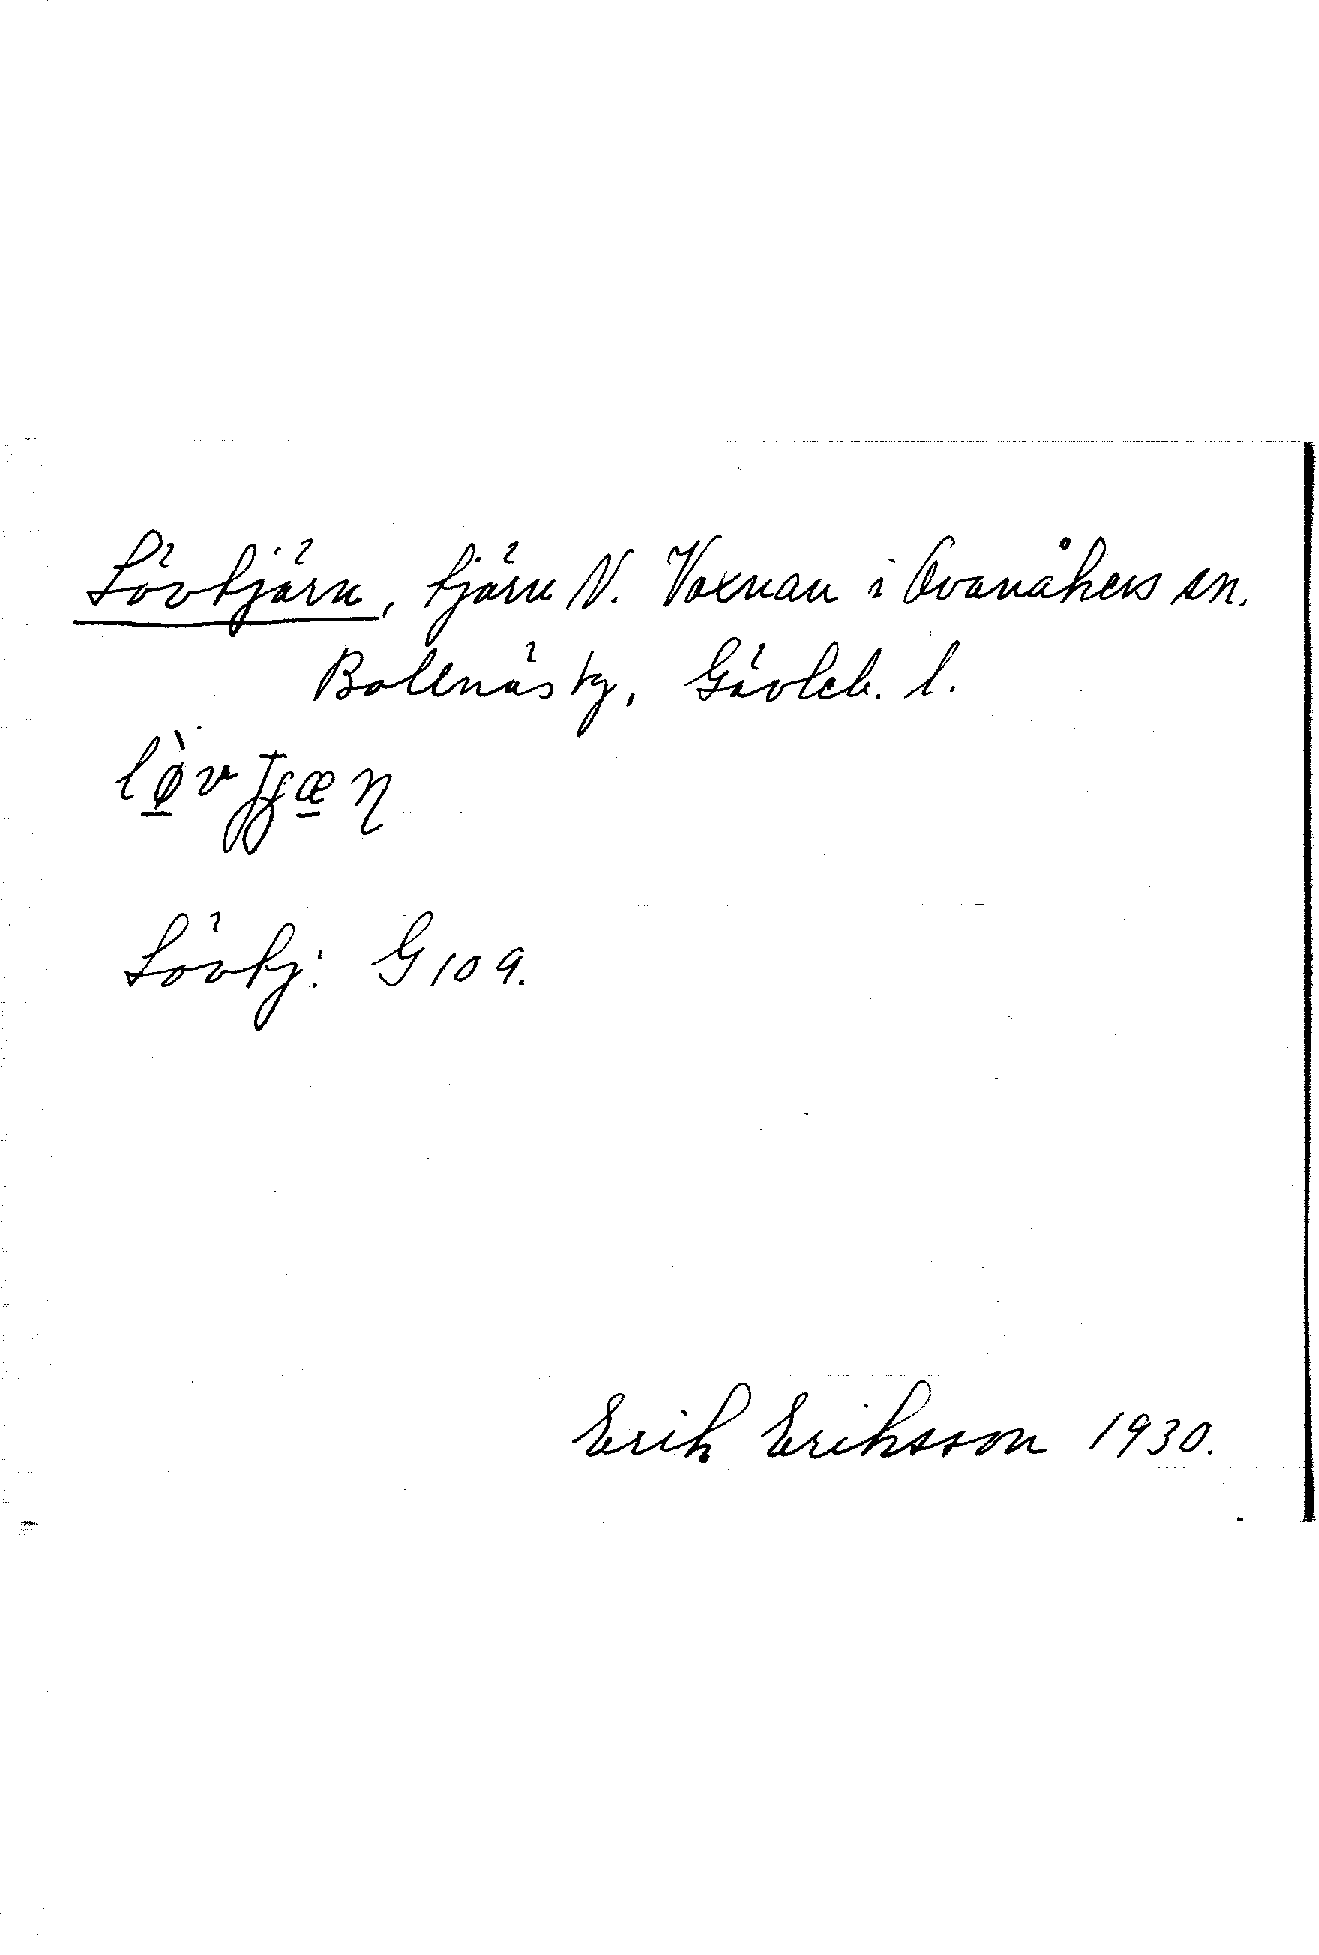 Lövtjärn, tjärn N. Voxnan i Ovanåkers sn.
Bollnäs tg, Gävleb. l.
Lövtj: G 109.
Erik Eriksson 1930.